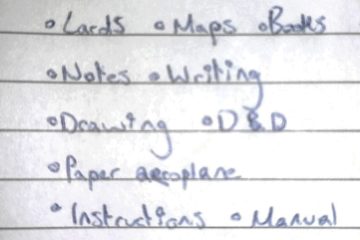 ∘Cards ∘Maps ∘Books
∘Notes ∘Writing
∘Drawing ∘D&D
∘Paper aeroplane
∘Instructions ∘Manual